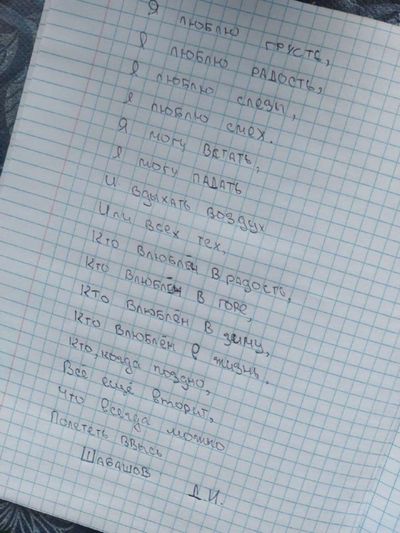 Я люблю грусть,
Я люблю радость,
Я люблю слезы,
Я люблю смех.
Я могу встать,
Я могу падать
И вдыхать воздух
Или всех тех,
Кто влюблён в радость,
Кто влюблён в горе,
Кто влюблён в зиму,
Кто влюблён в жизнь.
Кто, когда поздно,
Всё ещё вторит,
Что всегда можно
Полететь ввысь
Шабашов Д.И.